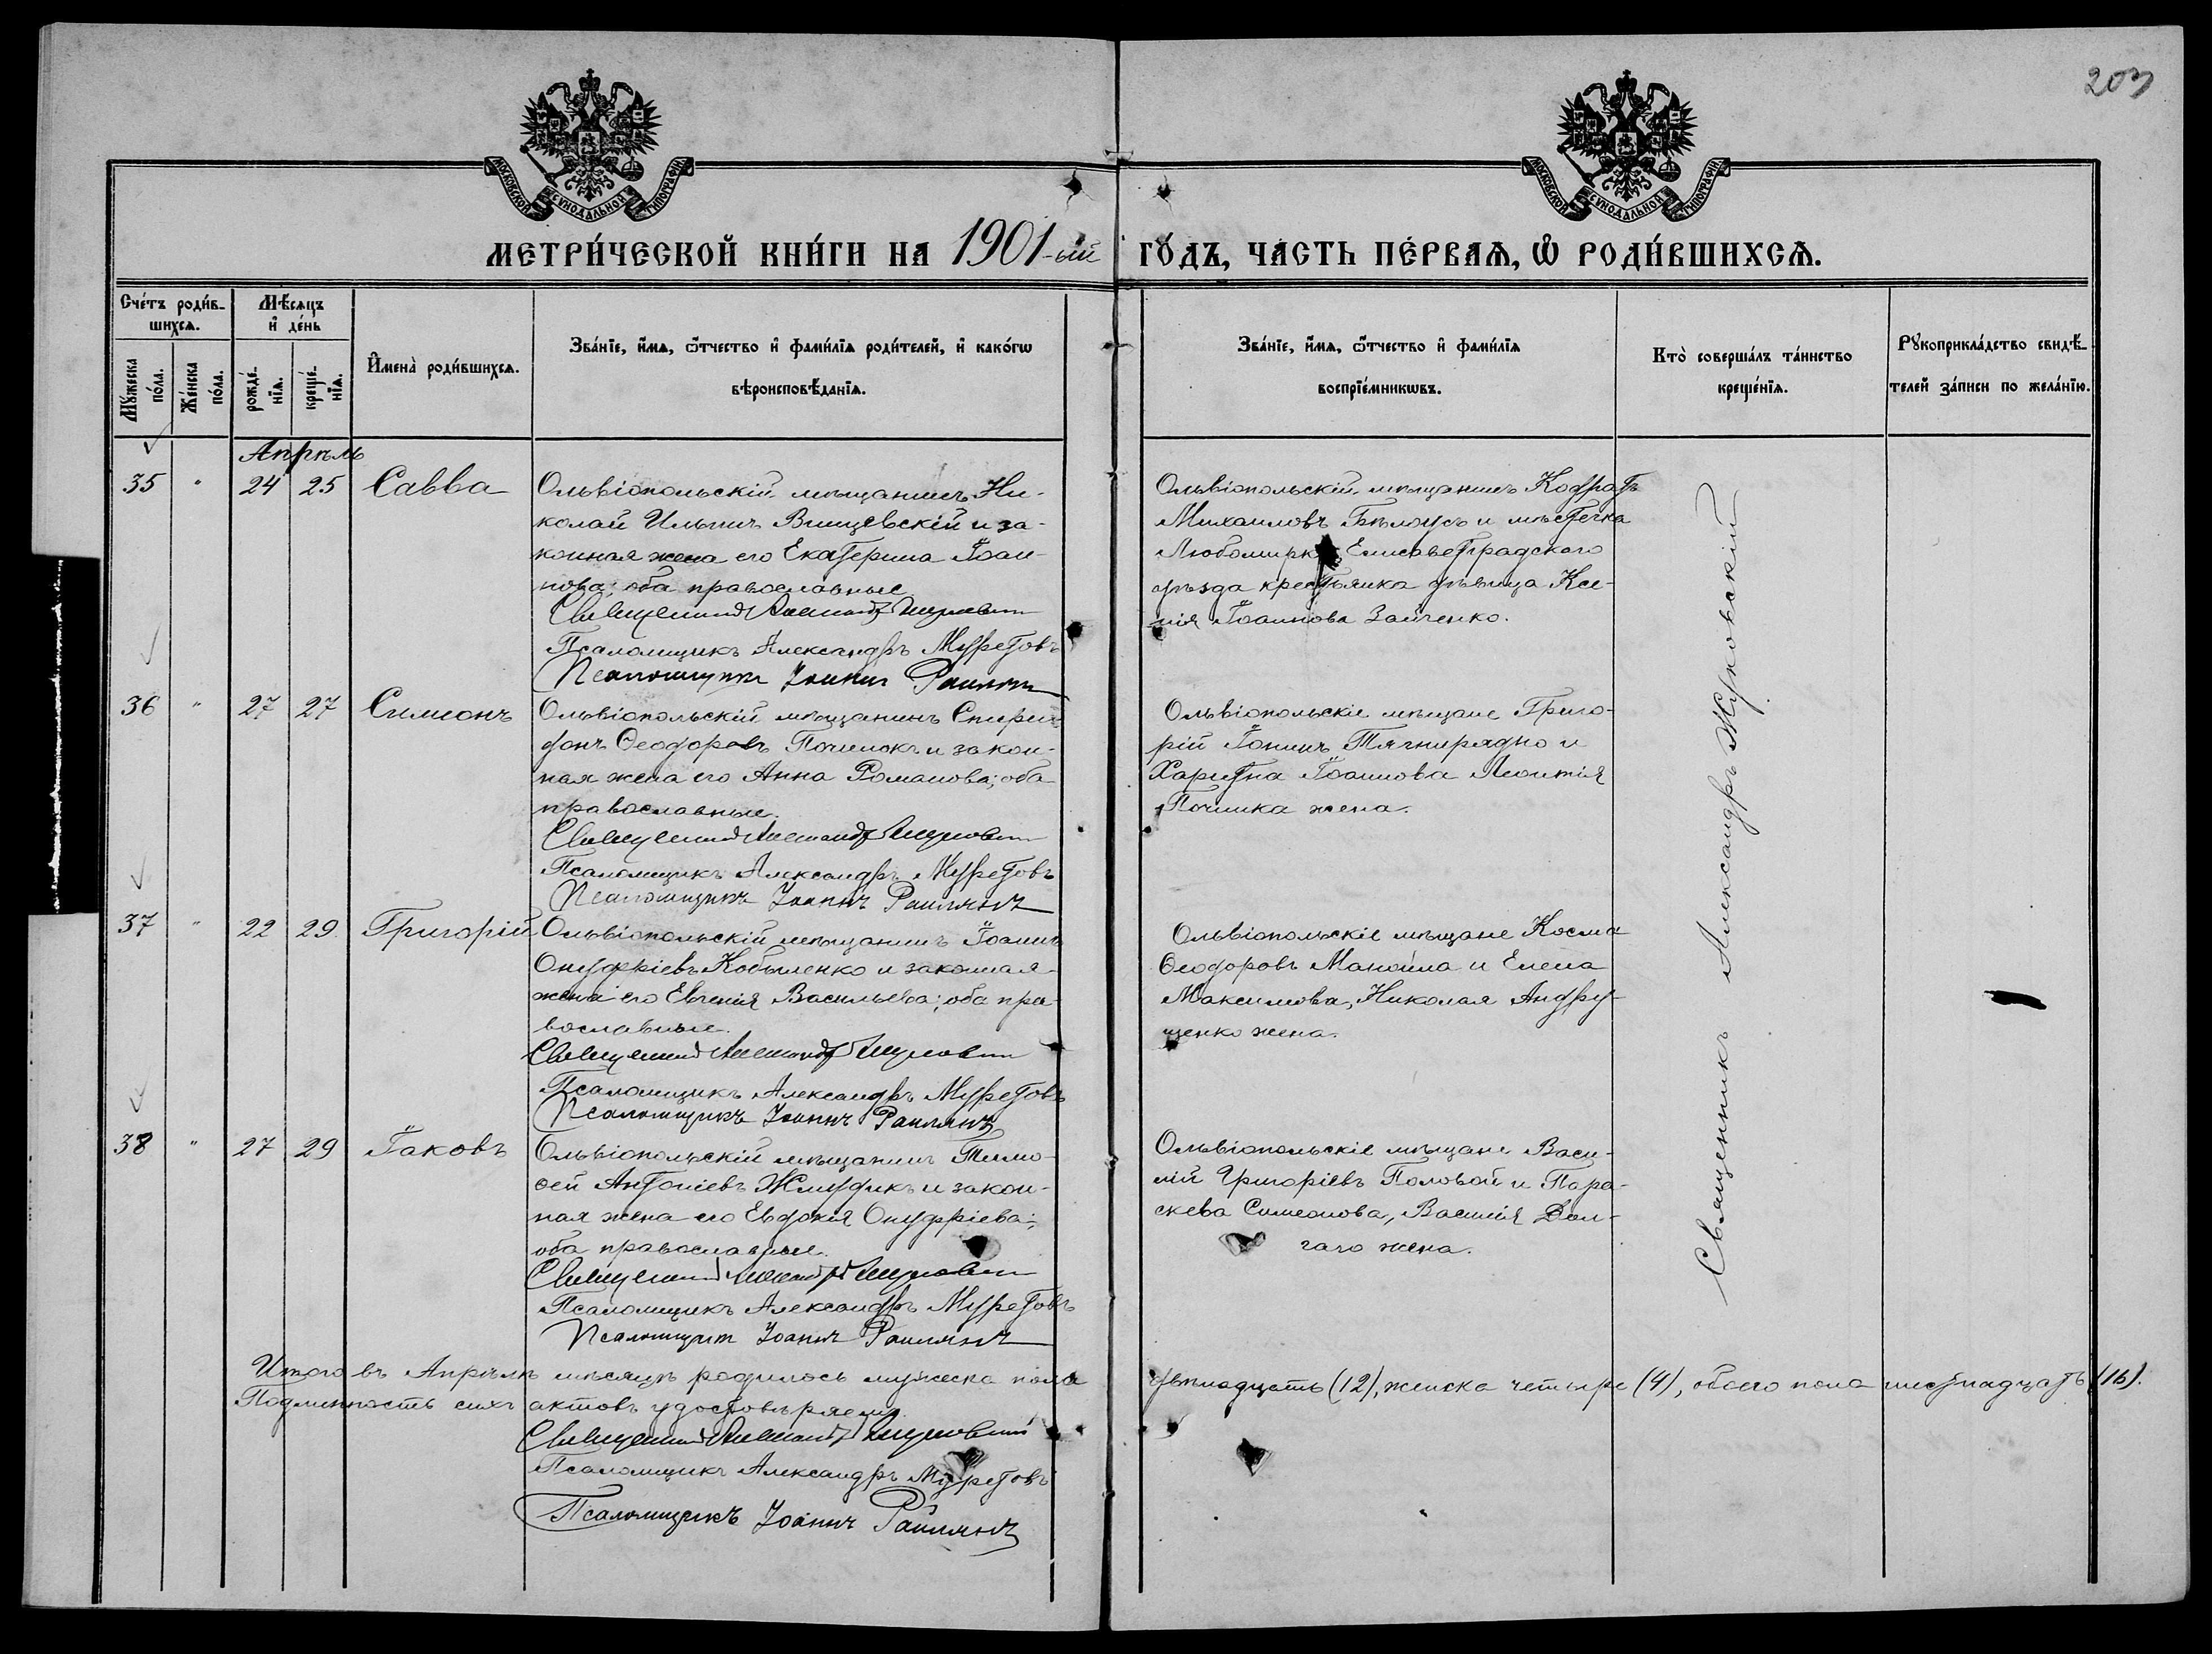 203
МОСКОВСКОЙ СѴНОДАЛЬНОЙ ТИПОГРАФІИ
МОСКОВСКОЙ СѴНОДАЛЬНОЙ ТИПОГРАФІИ
МЕТРИ́ЧЕСКОЙ КНИ́ГИ НА 1901-ый ГО́ДЪ, ЧА́СТЬ ПЕ́РВАѦ, Ѡ҆ РОДИ́ВШИХСѦ.
Сче́тъ роди́в-
шихсѧ.
Мꙋ́жеска по́ла.
Же́нска по́ла.
Мѣ́сяцъ
и҆ де́нь
рожде́-
нїѧ.
креще́-
нїѧ.
И҆мена̀ роди́вшихсѧ.
Зва́нїе, и҆́мѧ, ѻ҆́тчество и҆ фами́лїѧ роди́телей, и҆ како́гѡ
вѣроисповѣ́данїѧ.
Зва́нїе, и҆́мѧ, ѻ҆́тчество и҆ фами́лїѧ
воспрїе́мникѡвъ.
Кто̀ соверша́лъ та́инство
креще́нїѧ.
Рꙋкоприкла́дство свидѣ́-
телей за́писи по жела́нїю.
Апрѣль
35 " 24 25 Савва
Ольвіопольскій мѣщанинъ Ни-
колай Ильинъ Вишевскій и за-
конная жена его Екатерина Іоан-
нова; оба православные
Священникъ Александръ Жуковскій
Псаломщикъ Александръ Муретовъ
Псаломщикъ Іоаннъ Раилянъ
Ольвіопольскій мѣщанинъ Кодратъ
Михаиловъ Бѣлоусъ и мѣстечка
Любомирки Елисаветградского
уѣзда крестьянка дѣвица Ксе-
нія Іоаннова Зайченко.
36 " 27 27 Симеонъ
Ольвіопольскій мѣщанинъ Спири-
донъ Ѳеодоровъ Починокъ и закон-
ная жена его Анна Романова; оба
православные.
Священникъ Александръ Жуковскій
Псаломщикъ Александръ Муретовъ
Псаломщикъ Іоаннъ Раилянъ
Ольвіопольскіе мѣщане Григо-
рій Іоннъ Тягнирядно и
Харитна Іоаннова Леонтія
Починка жена.
37 " 22 29. Григорій
Ольвіопольскій мѣщанинъ Іоаннъ
Онуфріевъ Кобыленко и законная
жена его Евгенія Васильева; оба пра-
вославные.
Священникъ Александръ Жуковскій
Псаломщикъ Александръ Муретовъ
Псаломщикъ Іоаннъ Раилянъ
Ольвіопольскіе мѣщане Косма
Ѳеодоровъ Манойла и Елена
Максимова, Николая Андру-
щенко жена.
38 " 27 29 Іаковъ
Ольвіопольскій мѣщанинъ Тимо-
ѳей Антоніевъ Жмудикъ и закон-
ная жена его Евдокія Онуфріева;
оба православные.
Священникъ Александръ Жуковскій
Псаломщикъ Александръ Муретовъ
Псаломщикъ Іоаннъ Раилянъ
Ольвіопольскіе мѣщане Васи-
лій Григоріевъ Половой и Пара-
скева Симеонова, Василія Дол-
гаго жена.
Священникъ Александръ Жуковскій
Итого въ Апрѣлѣ мѣсяцѣ родилось мужеска пола двѣнадцать (12), женска четыре (4), обоего пола шестнадцать (16).
Подлинность сихъ актовъ удостовѣряемъ
Священникъ Александръ Жуковскій
Псаломщикъ Александръ Муретовъ
Псаломщикъ Іоаннъ Раилянъ